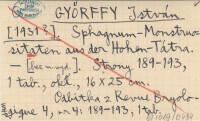 GYÖRFFY István
[1931?]. Sphagnum-Monstruo-
sitäten aus der Hohen-Tátra.
— [bez m. ngd.]. Strony 189-193,
1 tab., okł., 16 X 25 cm.
Odbitka z Revue Bryolo-
gique 4, nr 4: 189-193, 1 tab.